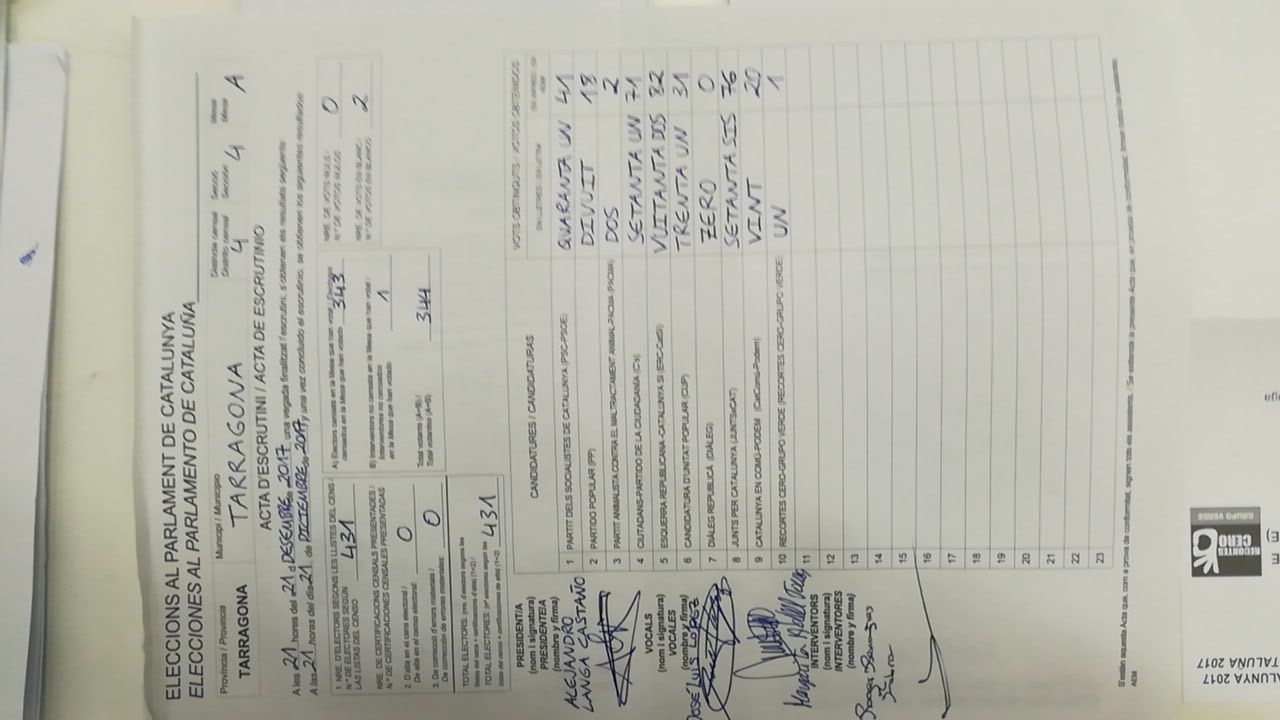 ELECCIONS AL PARLAMENT DE CATALUNYA
ELECCIONES AL PARLAMENTO DE CATALUÑA
Província / Provincia
TARRAGONA
Municipi / Municipio
TARRAGONA
Districte censal
Distrito censal
4
Secció
Sección
4
Mesa
Mesa
A
ACTA D'ESCRUTINI / ACTA DE ESCRUTINIO
A les 21 hores del 21 DESEMBRE de 2017 una vegada finalitzat l'escrutini, s'obtenen els resultats següents:
A las 21 horas del día 21 de DICIEMBRE de 2017, una vez concluido el escrutinio, se obtienen los siguientes resultados:
1 NRE. D'ELECTORS SEGONS LES LLISTES DEL CENS /
N.º DE ELECTORES SEGÚN
LAS LISTAS DEL CENSO
431
NRE. DE CERTIFICACIONS CENSALS PRESENTADES /
N.º DE CERTIFICACIONES CENSALES PRESENTADAS
2. D'alta en el cens electoral /
De alta en el censo electoral:
0
3. De correcció d'errors materials /
De corrección de errores materiales:
0
TOTAL ELECTORES:
431
A) Electors censats en la Mesa que han votat /
censados en la Mesa que han votado
343
B) Interventors no censats en la Mesa que han votat /
Interventores no censados
en la Mesa que han votado
1
Total votants (A+B) /
Total votantes (A+B)
344
NRE. DE VOTS NULS
N.º DE VOTOS NULOS
0
NRE. DE VOTS EN BLANC
N.º DE VOTOS EN BLANCO
2
CANDIDATURES / CANDIDATURAS
VOTS OBTINGUTS / VOTOS OBTENIDOS
1 PARTIT DELS SOCIALISTES DE CATALUNYA (PSC-PSOE) QUARANTA UN 41
2 PARTIDO POPULAR (PP) DIVUIT 18
3 PARTIT ANIMALISTA CONTRA EL MALTRACTAMENT ANIMAL-PACMA (PACMA) DOS 2
4 CIUTADANS-PARTIDO DE LA CIUDADANÍA (C's) SETANTA UN 71
5 ESQUERRA REPUBLICANA-CATALUNYA SÍ (ERC-CatSí) VUITANTA DOS 82
6 CANDIDATURA D'UNITAT POPULAR (CUP) TRENTA UN 31
7 DIÀLEG REPUBLICÀ (DIÀLEG) ZERO 0
8 JUNTS PER CATALUNYA (JUNTSxCAT) SETANTA SIS 76
9 CATALUNYA EN COMÚ-PODEM (CatComú-Podem) VINT 20
10 RECORTES CERO-GRUPO VERDE (RECORTES CERO-GRUPO VERDE) UN 1
11
12
13
14
15
16
17
18
19
20
21
22
23
PRESIDENT/A
(nom i signatura)
PRESIDENTE/A
(nombre y firma)
ALEJANDRO
LANGA CASTAÑO
VOCALS
(nom i signatura)
VOCALES
(nombre y firma)
JOSÉ LUIS LOPEZ
INTERVENTORS
(nom i signatura)
INTERVENTORES
(nombre y firma)
RECORTES
CERO
GRUPO VERDE
ALUNYA 2017
TALUÑA 2017